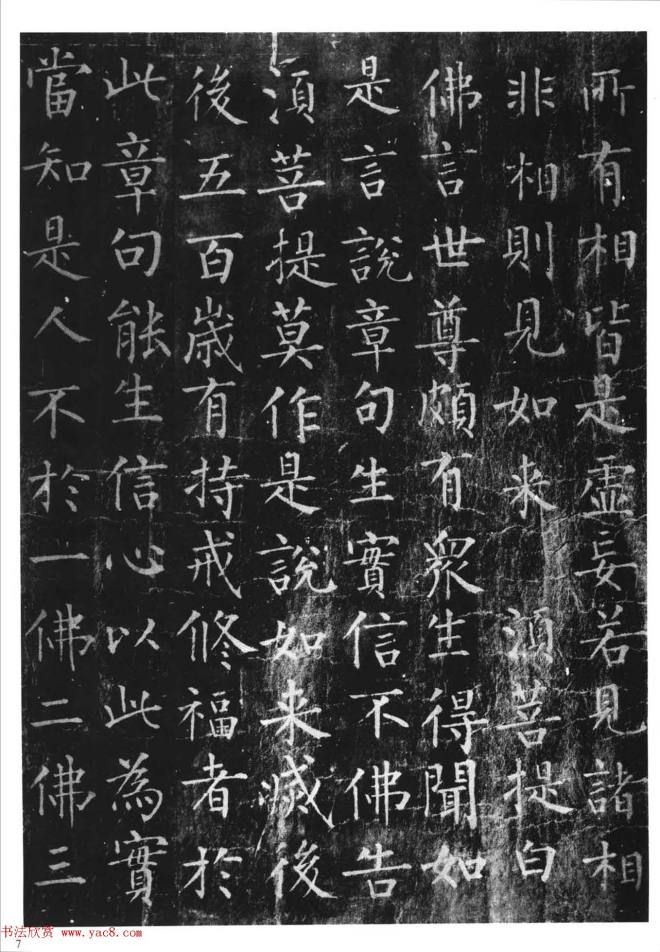 所有相皆是虛妄若見諸相
非相則見如来 須菩提白
佛言世尊頗有衆生得聞如
是言說章句生實信不佛告
須菩提莫作是說如来滅後
後五百歲有持戒修福者於
此章句能生信心以此為實
當知是人不於一佛二佛三
书法欣赏 www.yac8.com
7